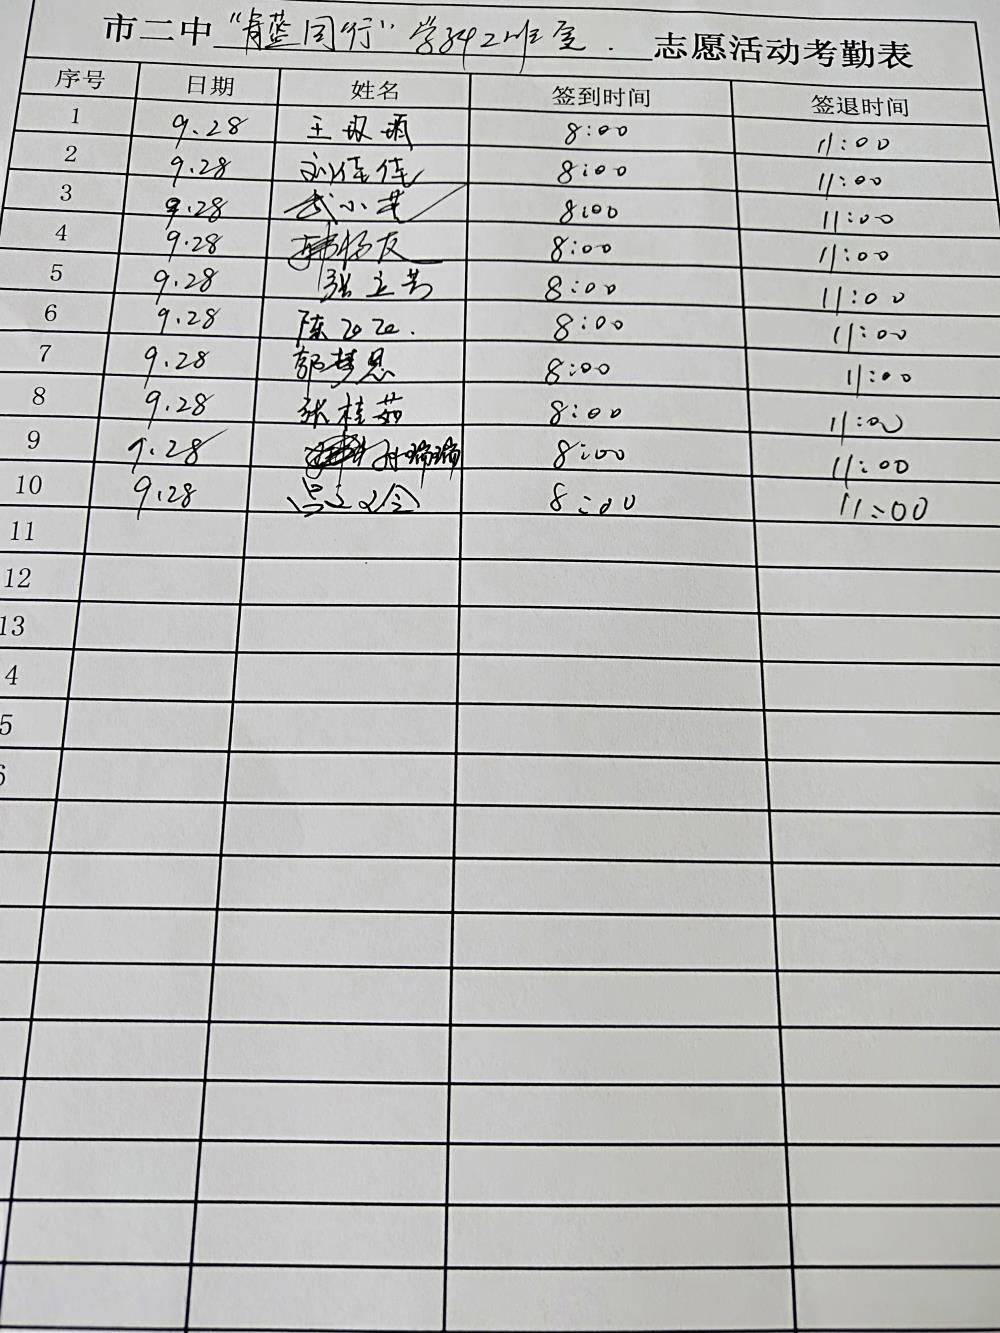 市二中“青蓝同行”学科工班室. 志愿活动考勤表
序号 日期 姓名 签到时间 签退时间
1 9.28 王 8:00 11:00
2 9.28 刘佳佳 8:00 11:00
3 9.28 武小芸 8:00 11:00
4 9.28 韩杨友 8:00 11:00
5 9.28 张立芳 8:00 11:00
6 9.28 陈 8:00 11:00
7 9.28 郭梦恩 8:00 11:00
8 9.28 张桂茹 8:00 11:00
9 9.28 瑞瑞 8:00 11:00
10 9.28 8:00 11:00
11
12
13
4
5
6